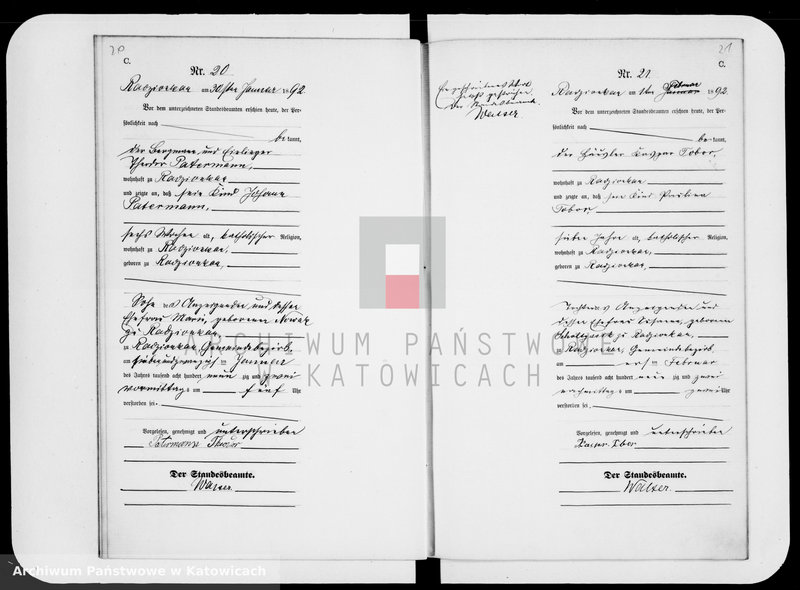 20
C.
Nr. 20
Radzionkau am 30ten Januar 1892
Vor dem unterzeichneten Standesbeamten erschien heute, der Per-
sönlichkeit nach
be kannt,
der Bergmann und Einlieger
Theodor Patermann,
wohnhaft zu Radzionkau
und zeigte an, daß sein Kind Johann
Patermann,
sechs Wochen alt, katholischer Religion,
wohnhaft zu Radzionkau,
geboren zu Radzionkau,
Sohn des Anzeigenden und dessen
Ehefrau Marie, geborenen Nowak
zu Radzionkau
zu Radzionkau Gemeindebezirk
am Januar
des Jahres tausend acht hundert neun zig und zwei
vormittags um fünf Uhr
verstorben sei.
Vorgelesen, genehmigt und unterschrieben
Patermann Theodor
Der Standesbeamte.
Walser
Der Standesbeamte
Walser
21
C.
Nr. 21
Radzionkau am 1ten Januar Februar 1892
Vor dem unterzeichneten Standesbeamten erschien heute, der Per-
sönlichkeit nach
be kannt,
der Häusler Tobor,
wohnhaft zu Radzionkau
und zeigte an, daß sein Kind
Tobor
sieben Jahre alt, katholischer Religion,
wohnhaft zu Radzionkau,
geboren zu Radzionkau,
Tochter des Anzeigenden und
dessen Ehefrau geborenen
zu Radzionkau,
zu Radzionkau, Gemeindebezirk
am ersten Februar
des Jahres tausend acht hundert neun zig und zwei
nachmittags um zwei Uhr
verstorben sei.
Vorgelesen, genehmigt und unterschrieben
Tobor
Der Standesbeamte.
Walser
ARCHIWUM PAŃSTWOWE
W KATOWICACH
Archiwum Państwowe w Katowicach